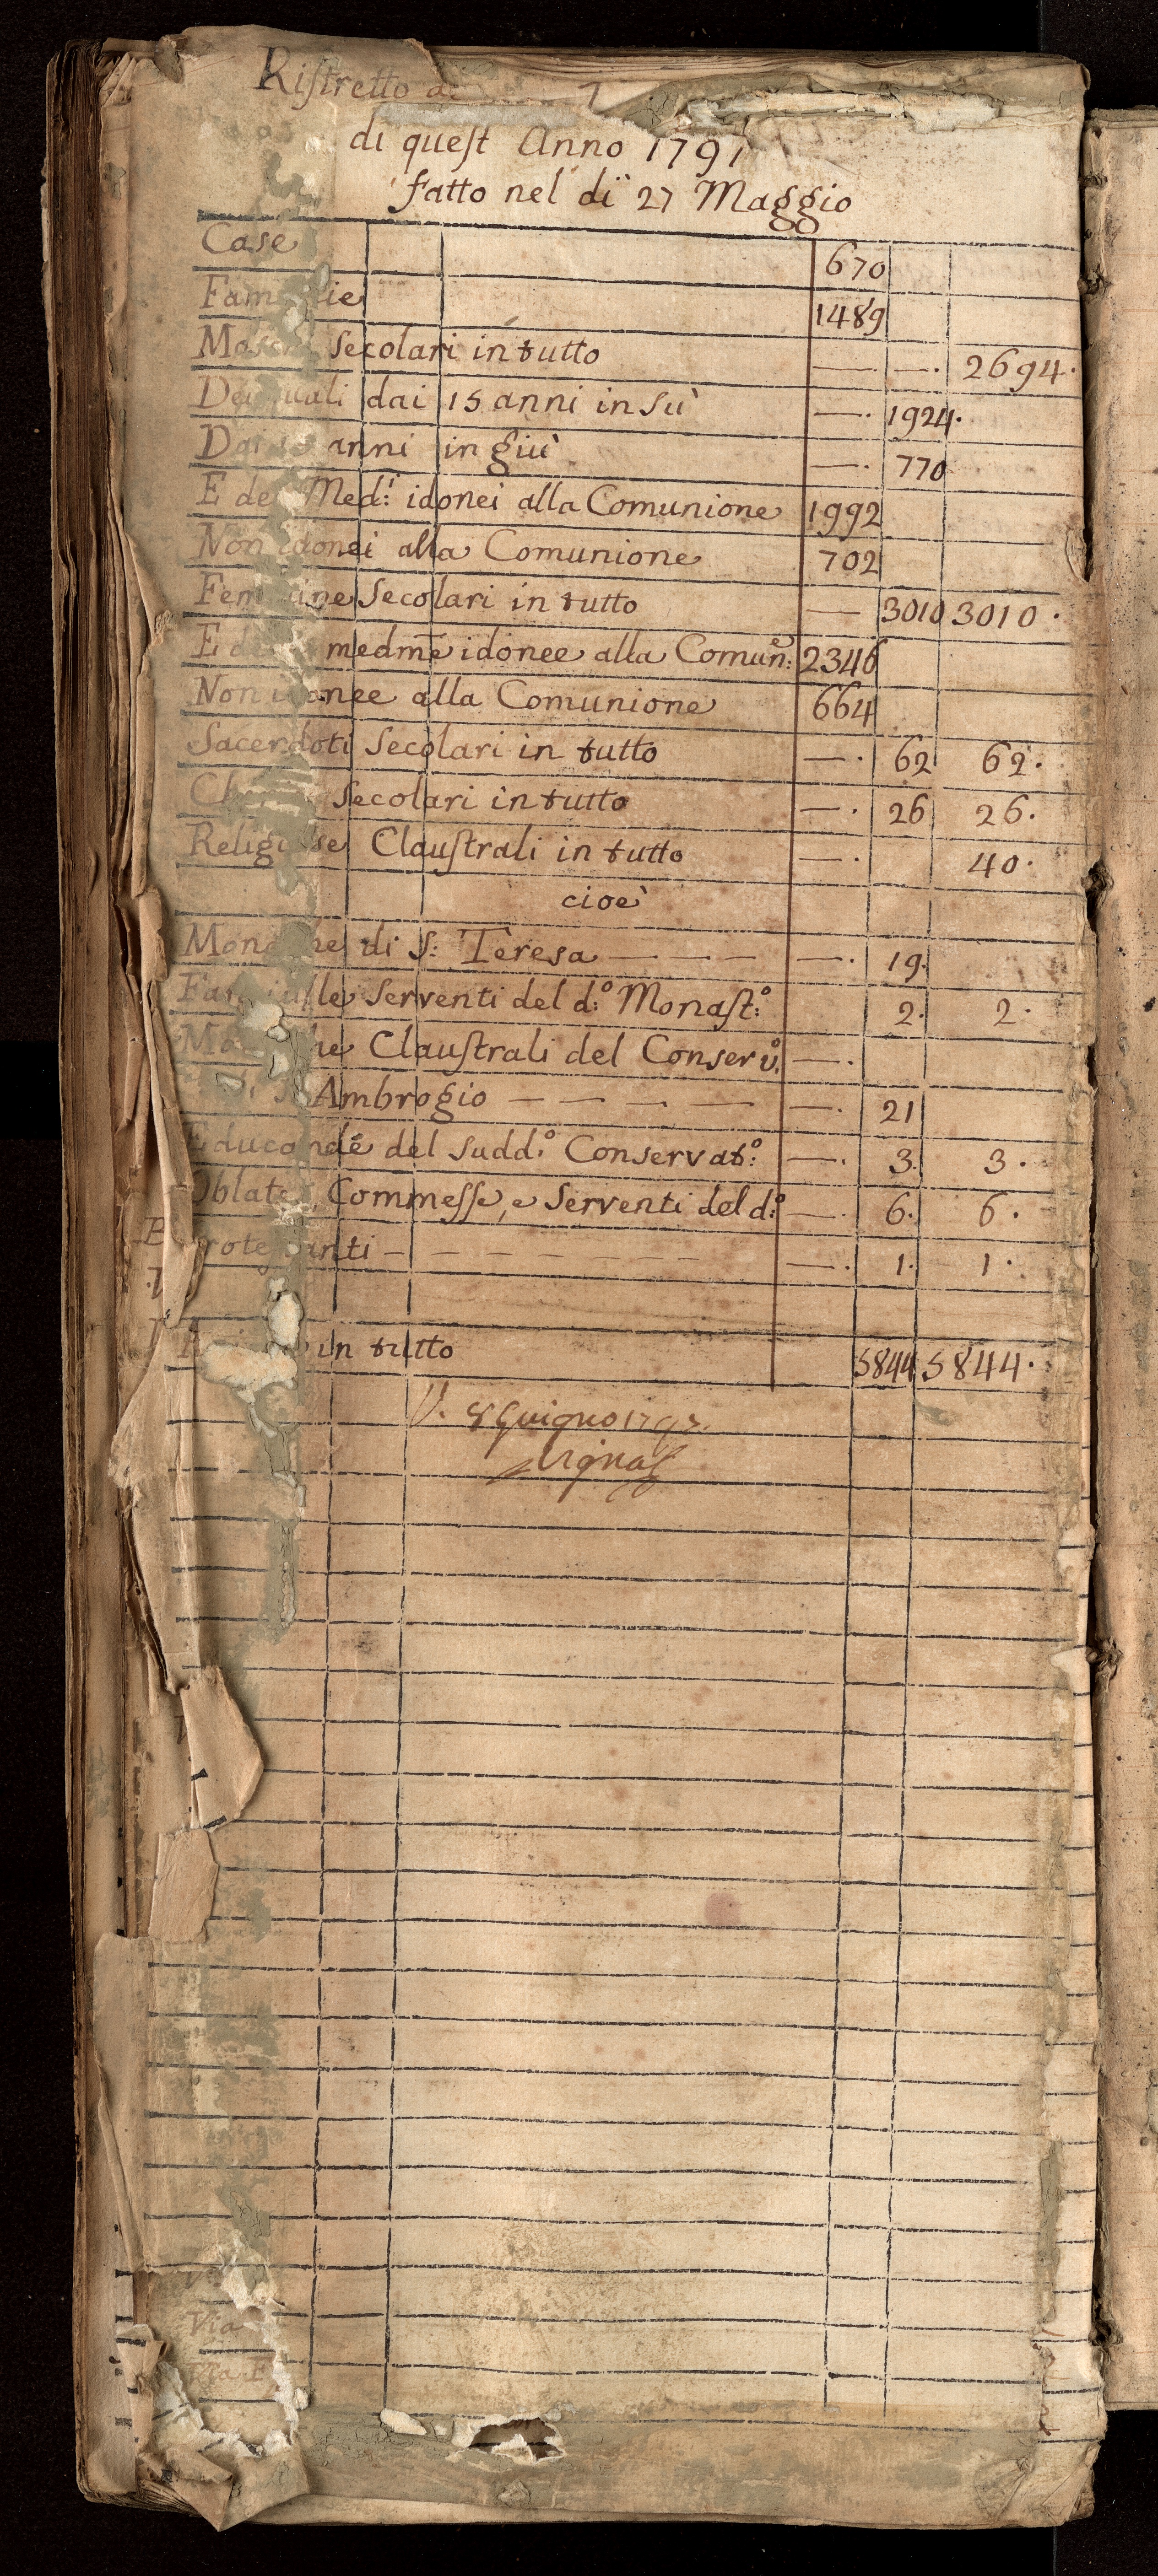 Riſtretto
di queſt Anno 1791
fatto nel dì 27 Maggio
Case 670
Famiglie 1489
Maschi Secolari in tutto — —. 2694.
Dei quali dai 15 anni in Sù —. 1924.
Dai 15 anni in giù —. 770
E dei Med:i idonei alla Comunione 1992
Non idonei alla Comunione 702
Femmine Secolari in tutto — 3010 3010.
E delle medme idonee alla Comun:e 2346
Non idonee alla Comunione 664
Sacerdoti Secolari in tutto —. 62 62.
Secolari in tutto —. 26 26.
Religiose Clauſtrali in tutto —. 40.
cioè
Monache di S: Teresa — — — —. 19.
Fanciulle Serventi del d:o Monaſt:o 2. 2.
Monache Clauſtrali del Conserv:o —.
Di S. Ambrogio — — — — — —. 21
Educande del Sudd:o Conservat:o —. 3. 3.
Oblate, Commeſſe, e Serventi del d:o —. 6. 6.
Protestanti — — — — — —. 1. 1.
in tutto 5844 5844.
V. 8 Guigno
Via